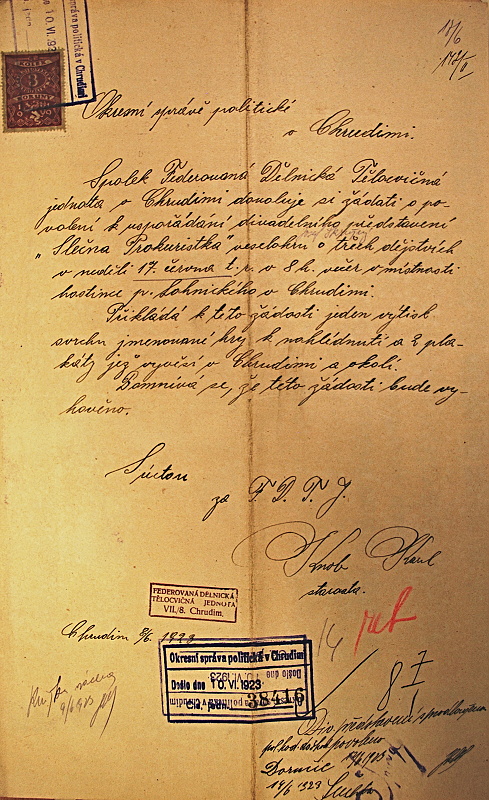 správa politická v Chrudimi
10. VI. 923
KOLEK
KORUNY
17/6
Okresní správě politické
v Chrudimi.
Spolek Federovaná Dělnická Tělocvičná
jednota v Chrudimi dovoluje si žádati o po-
volení k uspořádání divadelního představení
„Slečna Prokuristka" veselohru o třech dějstvích
v neděli 17. června t. r. v 8 h. večer v místnosti
hostince p. Sohnického v Chrudimi.
Přikládá k této žádosti jeden výtisk
svrchu jmenované hry k nahlédnutí a 2 pla-
káty jež vyvěsí v Chrudimi a okolí.
Domnívá se, že této žádosti bude vy-
hověno.
Súctou
za F. D. T. J.
Knob Karel
starosta.
FEDEROVANÁ DĚLNICKÁ
TĚLOCVIČNÁ JEDNOTA
VII./8. Chrudim.
Chrudim 9/6. 1923
Okresní správa politická v Chrudimi
Došlo dne 10. VI. 1923
38416
14
87
Div. představení
povoleno
Doručit
14/6 1923